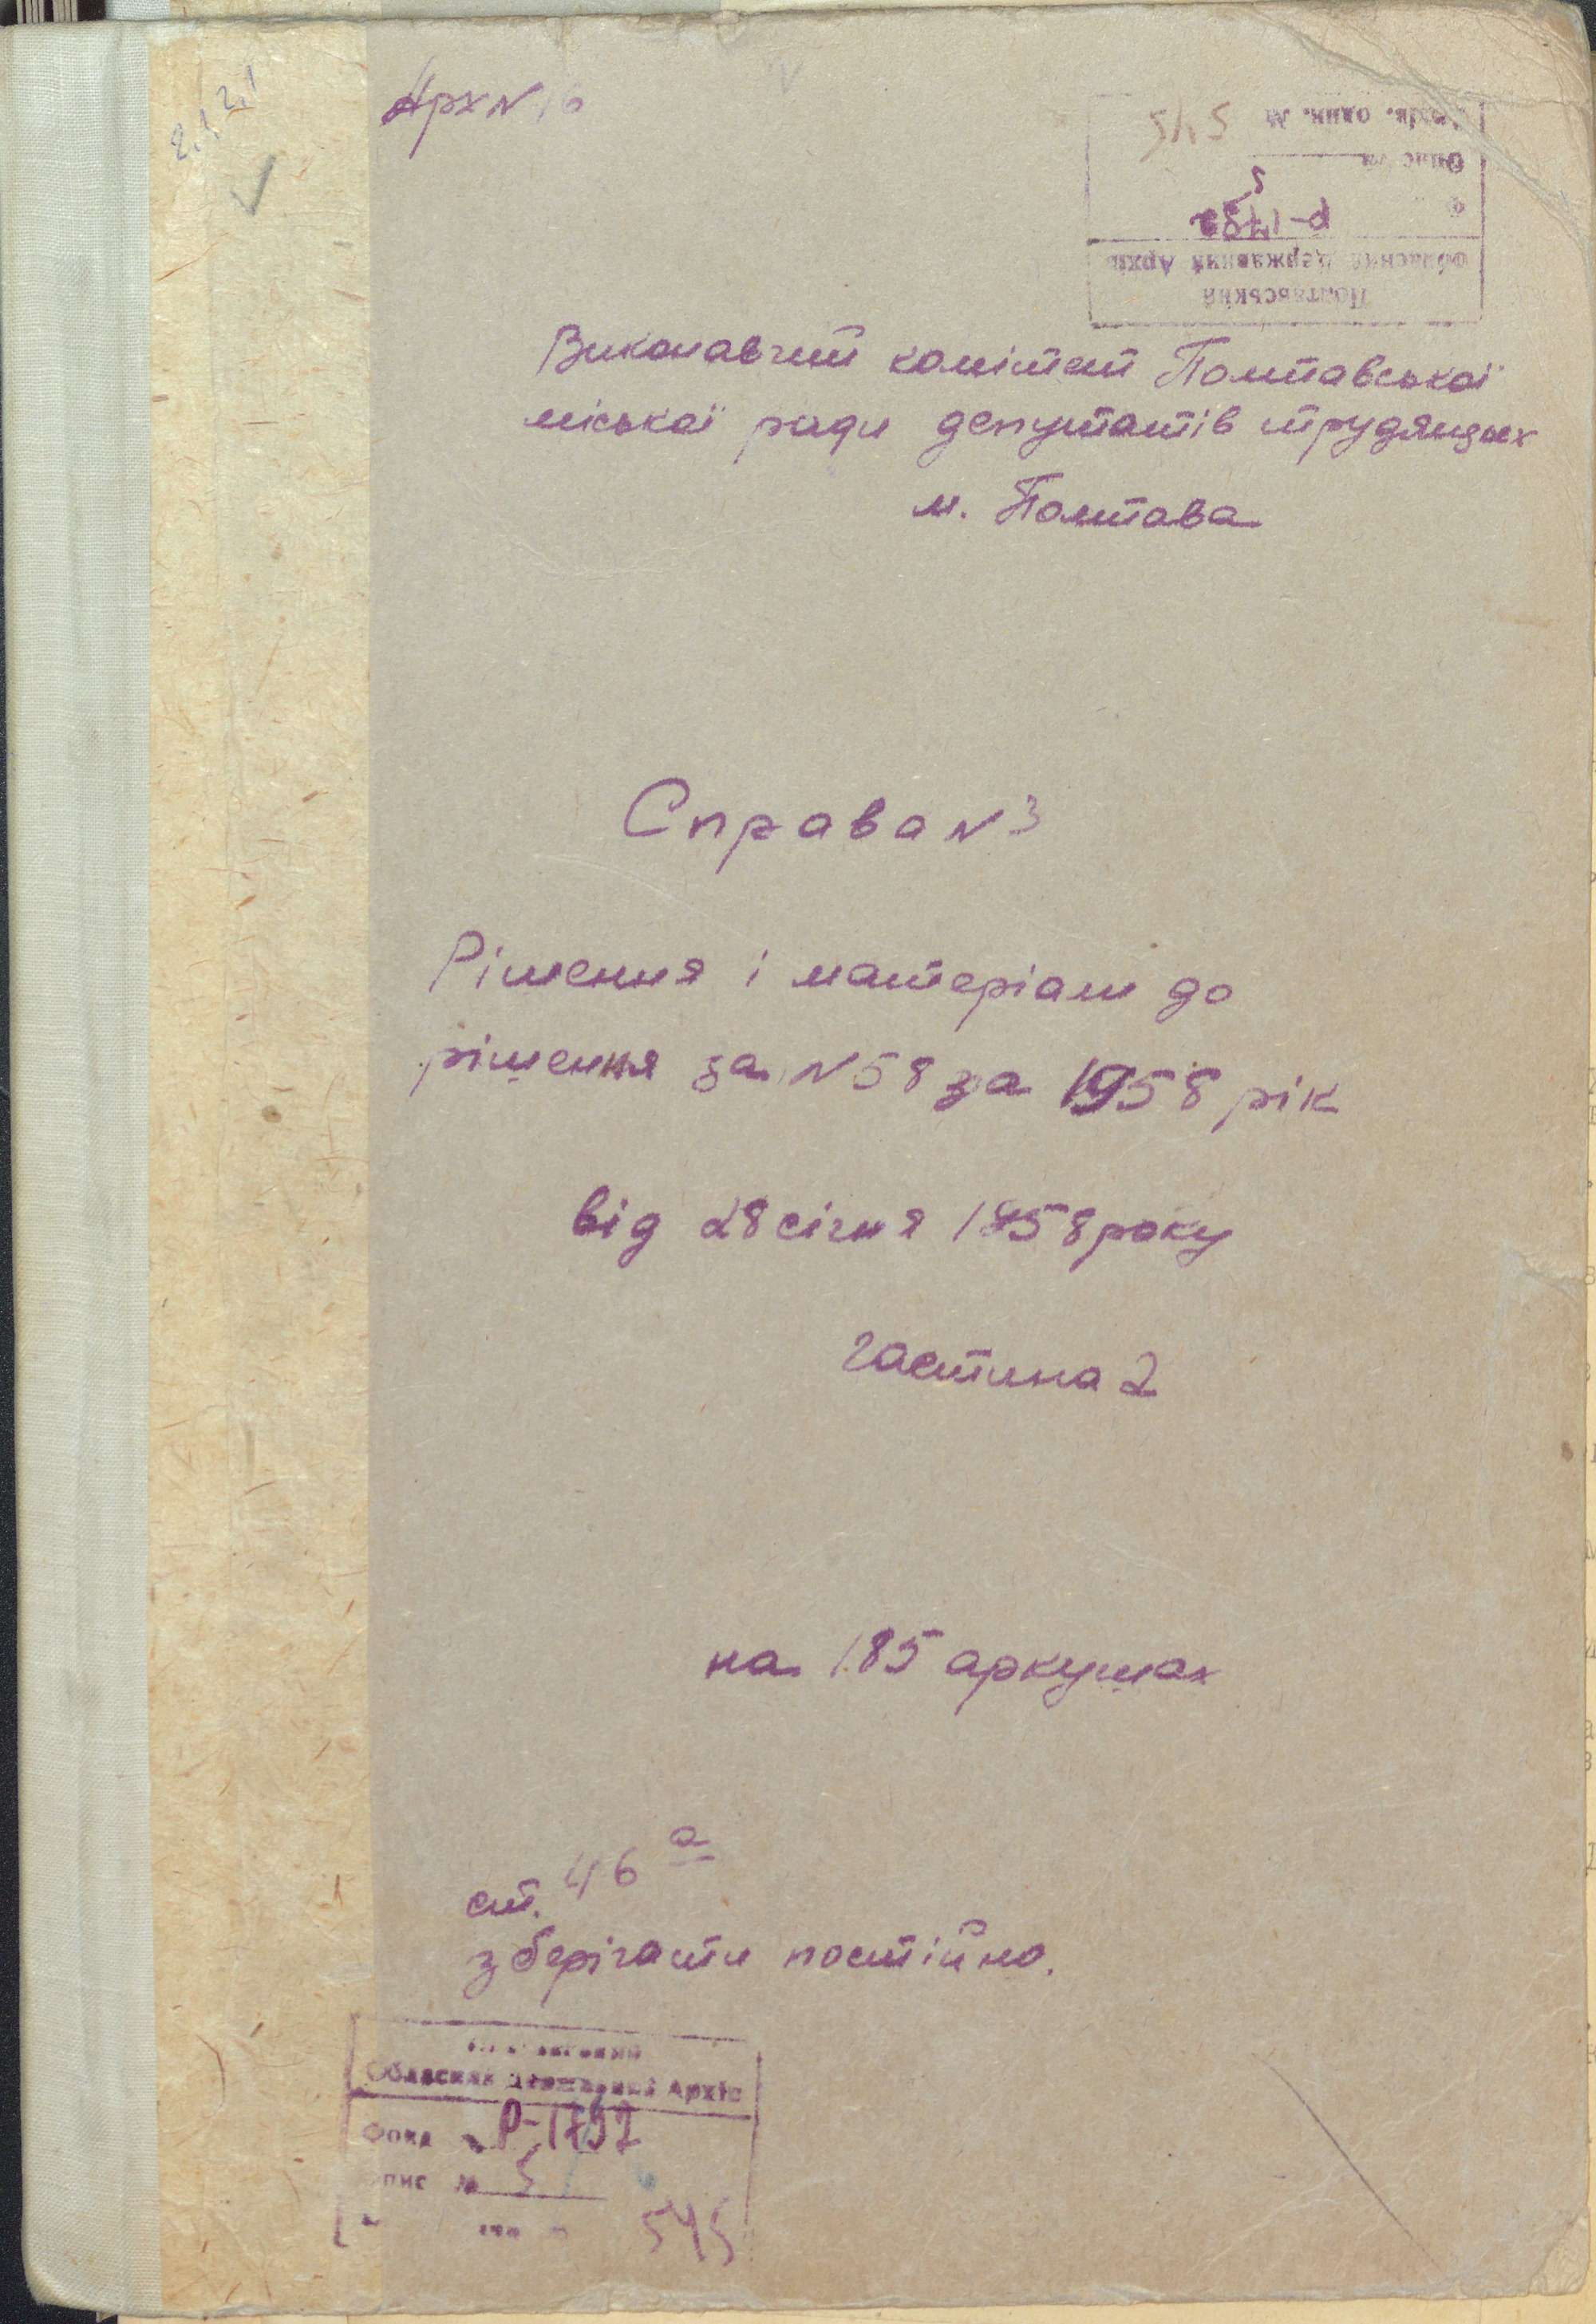 2.12.1
Арх N 6
Полтавський
Обласний Державний Архів
Ф. Р-1792
Опис № 5
Архів. один. № 545
Виконавчий комітет Полтавської
міської ради депутатів трудящих
м. Полтава
Справа N 3
Рішення і матеріали до
рішення за N 58 за 1958 рік
від 28 січня 1958 року
частина 2
на 185 аркушах
ст. 46 а
зберігати постійно.
Обласний Державний Архів
Фонд № Р-1792
Опис № 5
545